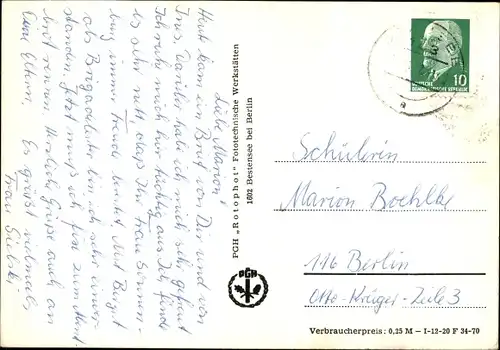 Liebe Marion!
Heute kam ein Brief von Dir und von
Ines. Darüber habe ich mich sehr gefreut
Ich ruhe mich hier richtig aus. Ich finde
es sehr nett, daß Ihr Frau
immer Freude Mit Birgit
als Brigadeleiter bin ich sehr einver-
standen. Jetzt muß ich fest zum
Herzliche Grüße auch an
Deine Eltern. Es grüßt vielmals
Frau
PGH „Rotophot" Fototechnische Werkstätten
1602 Bestensee bei Berlin
PGH
DEUTSCHE
DEMOKRATISCHE REPUBLIK
10
Schülerin
Marion Boehlke
116 Berlin
Otto-Krüger-Zeile 3
Verbraucherpreis: 0,25 M – I-12-20 F 34-70